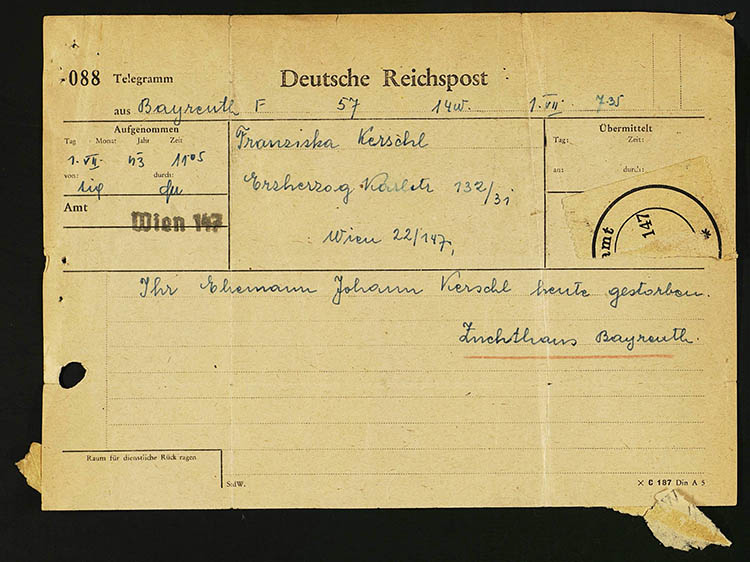 088 Telegramm Deutsche Reichspost
aus Bayreuth F 57 14W. 1. VII 735
Aufgenommen
Tag Monat Jahr Zeit
1. VII 43 1105
von: durch:
Amt Wien 147
Franziska Kerschl
Erzherzog Karlstr 132/31
Wien 22/147,
Übermittelt
Tag: Zeit:
an: durch:
amt 147 *
Ihr Ehemann Johann Kerschl heute gestorben.
Zuchthaus Bayreuth.
Raum für dienstliche Rück ragen
StdW.
× C 187 Din A 5